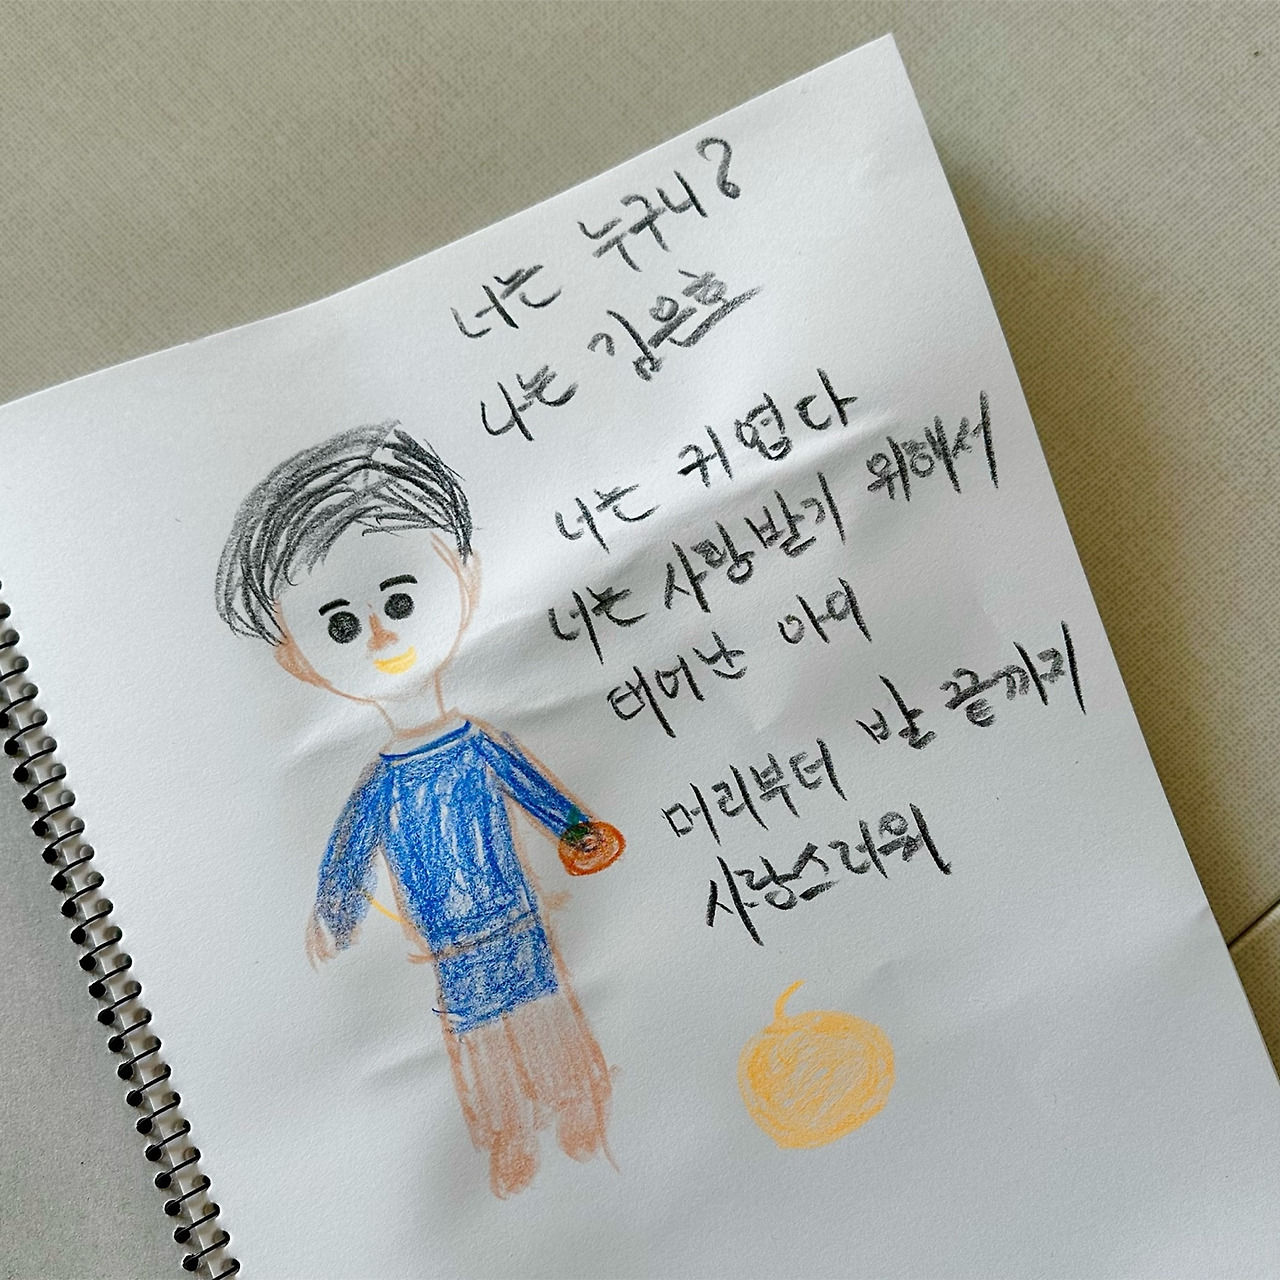 너는 누구니?
나는 김은호
너는 귀엽다
너는 사랑받기 위해서
태어난 아이
머리부터 발 끝까지
사랑스러워